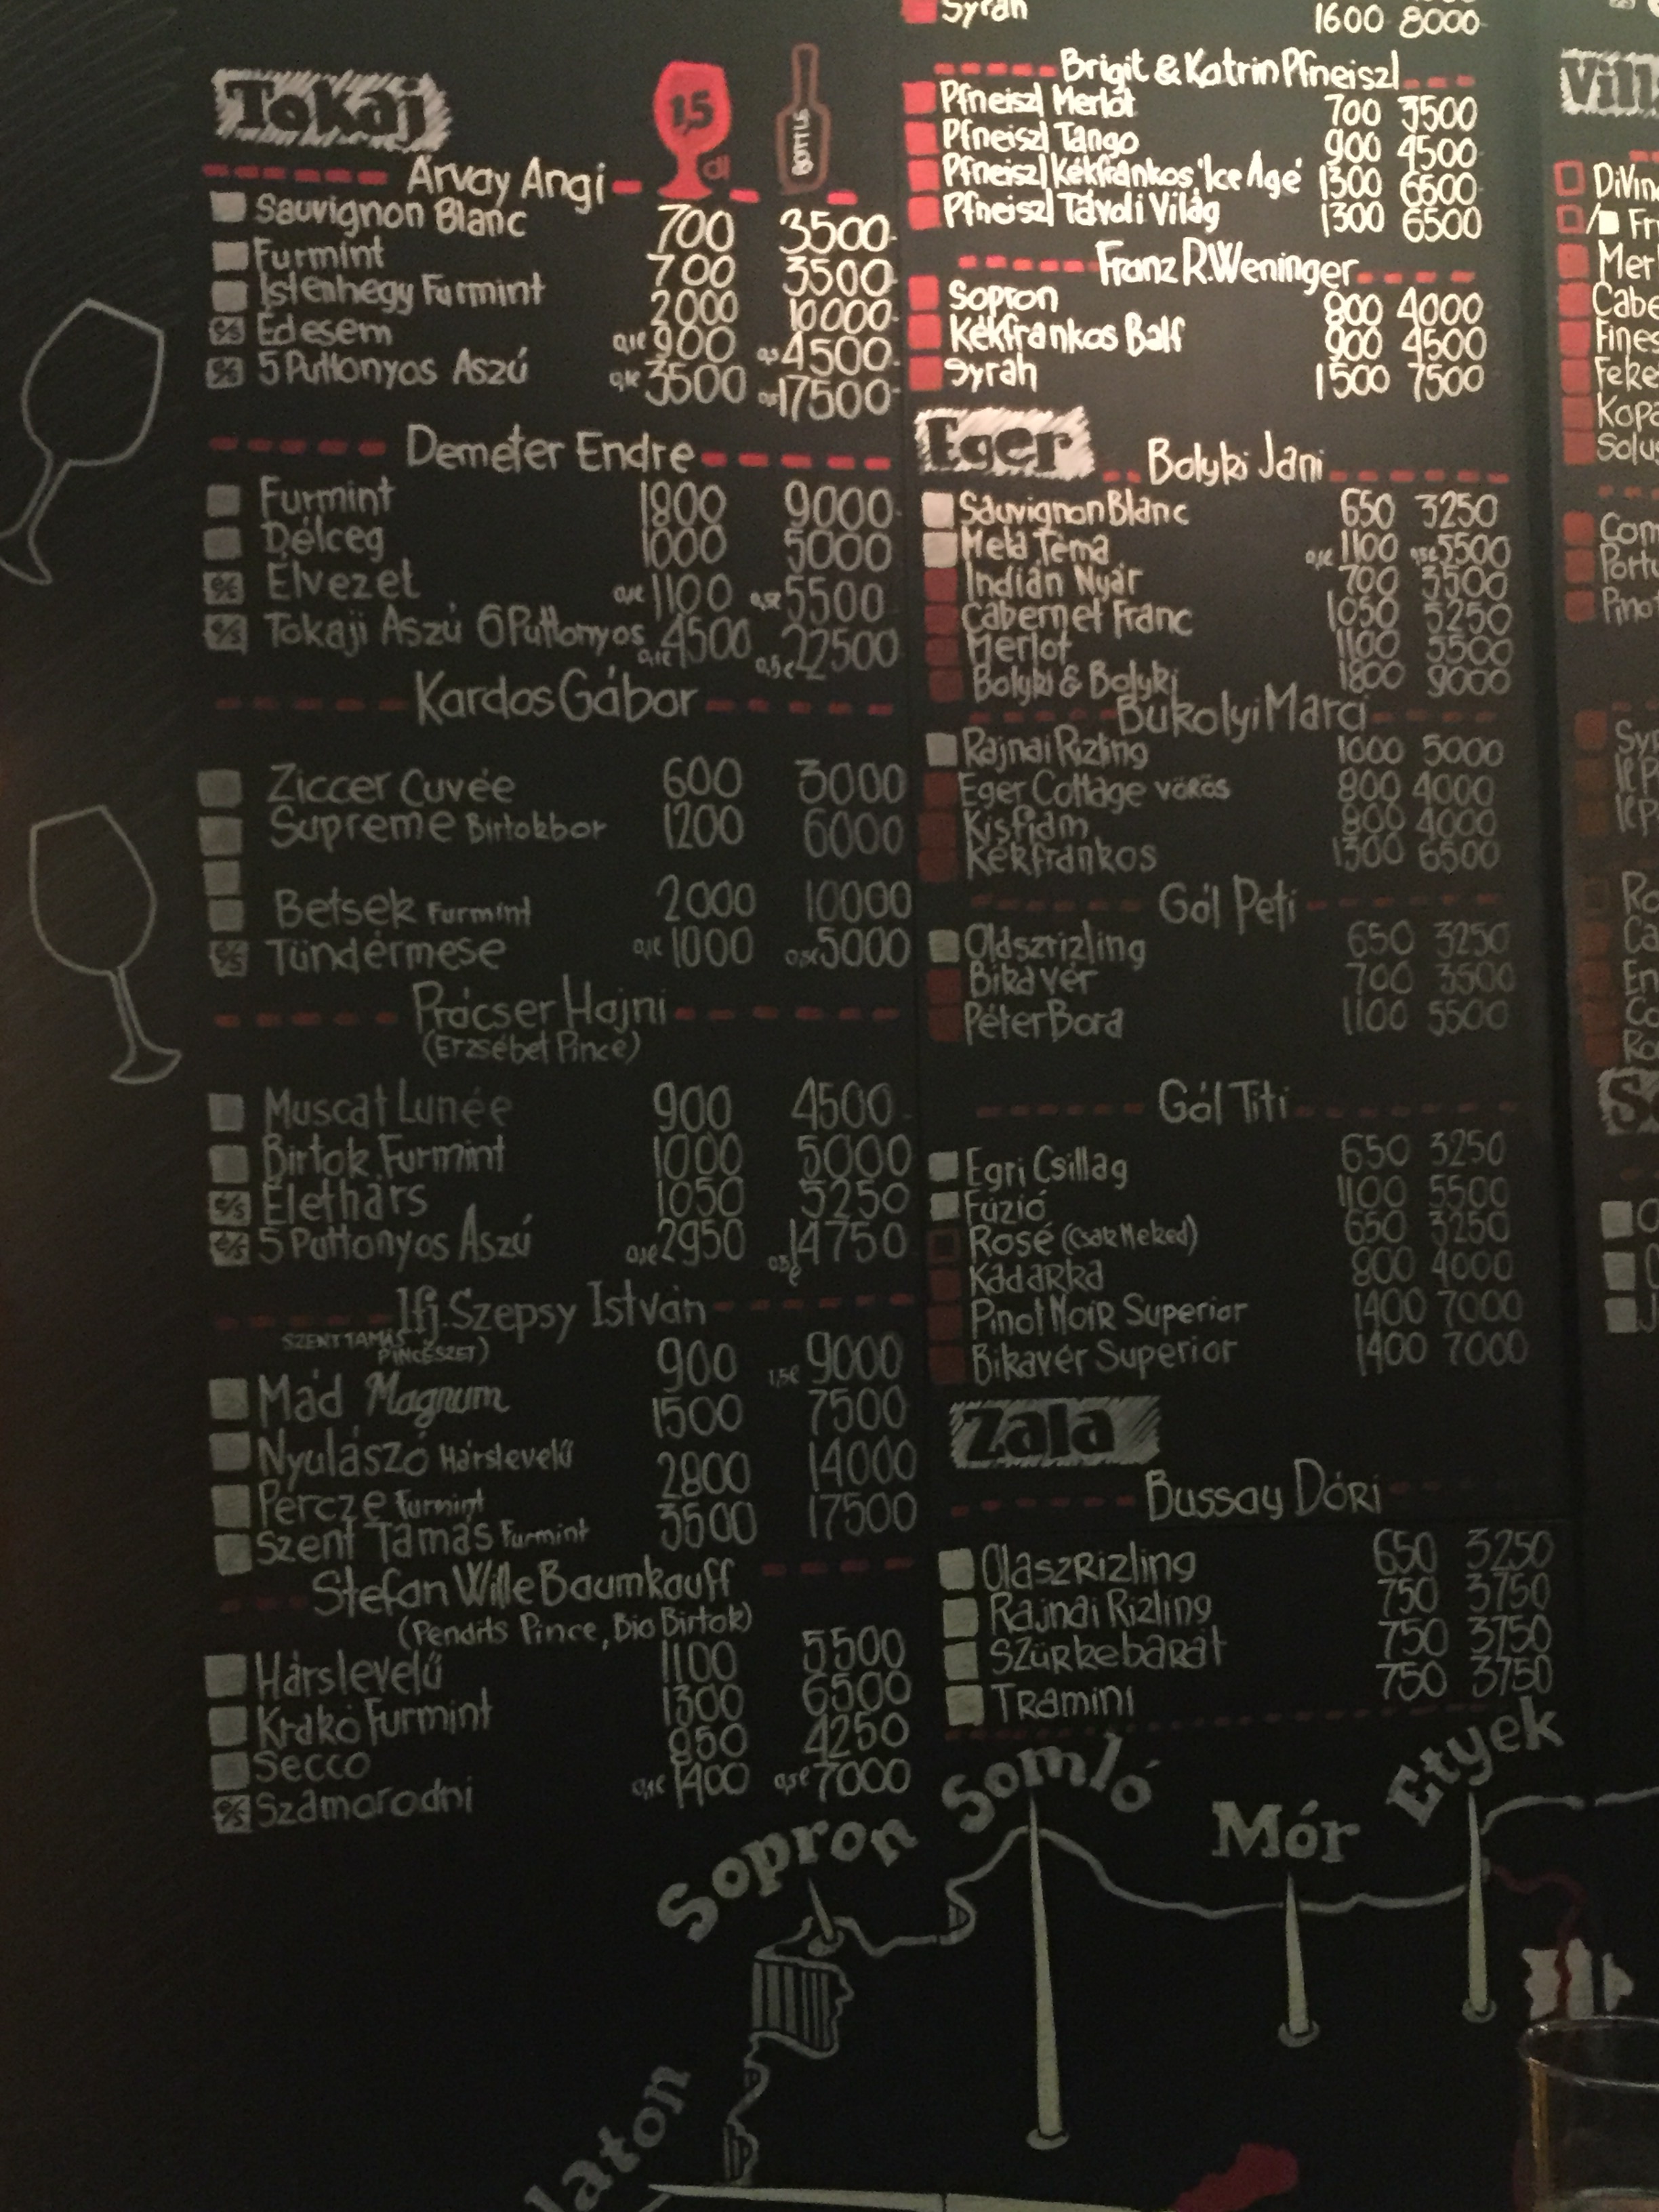 Tokaj
1,5 dl
BOTTLE
Árvay Angi
Sauvignon Blanc 700 3500
Furmint 700 3500
Istenhegy Furmint 2000 10000
Édesem 0,1l 900 0,5 4500
5 Puttonyos Aszú 0,1l 3500 0,5l 17500
Demeter Endre
Furmint 1800 9000
Délceg 1000 5000
Élvezet 0,1l 1100 0,5l 5500
Tokaji Aszú 6 Puttonyos 0,1l 4500 0,5l 22500
Kardos Gábor
Ziccer Cuvée 600 3000
Supreme Birtokbor 1200 6000
Betsek Furmint 2000 10000
Tündérmese 0,1l 1000 0,5l 5000
Prácser Hajni
(Erzsébet Pince)
Muscat Lunée 900 4500
Birtok Furmint 1000 5000
Élethárs 1050 5250
5 Puttonyos Aszú 0,1l 2950 0,5l 14750
Ifj. Szepsy István
SZENT TAMÁS PINCÉSZET)
Mád Magnum 900 1,5l 9000
Nyulászó Hárslevelű 1500 7500
Percze Furmint 2800 14000
Szent Tamás Furmint 3500 17500
Stefan Wille Baumkauff
(Pendits Pince, Bio Birtok)
Hárslevelű 1100 5500
Krakó Furmint 1300 6500
Secco 850 4250
Szamorodni 0,1l 1400 0,5l 7000
Syrah 1600 8000
Brigit & Katrin Pfneiszl
Pfneiszl Merlot 700 3500
Pfneiszl Tango 900 4500
Pfneiszl Kékfrankos 'Ice Age' 1300 6500
Pfneiszl Távoli Világ 1300 6500
Franz R. Weninger
Sopron 800 4000
Kékfrankos Balf 900 4500
Syrah 1500 7500
Eger
Bolyki Jani
Sauvignon Blanc 650 3250
Meta Téma 0,1l 1100 0,5l 5500
Indián Nyár 700 3500
Cabernet Franc 1050 5250
Merlot 1100 5500
Bolyki & Bolyki 1800 9000
Bukolyi Marci
Rajnai Rizling 1000 5000
Eger Cottage vörös 800 4000
Kisfiam 800 4000
Kékfrankos 1300 6500
Gál Peti
Olaszrizling 650 3250
Bikavér 700 3500
Péter Bora 1100 5500
Gál Titi
Egri Csillag 650 3250
Fúzió 1100 5500
Rosé (Csak Neked) 650 3250
Kadarka 800 4000
Pinot Noir Superior 1400 7000
Bikavér Superior 1400 7000
Zala
Bussay Dóri
Olaszrizling 650 3250
Rajnai Rizling 750 3750
Szürkebarát 750 3750
Tramini 750 3750
Sopron
Somló
Mór
Etyek
laton
Vill
DiVin
Fr
Mer
Cabe
Fines
Feke
Kopa
Solus
Com
Portu
Pinot
Syr
Ro
Ca
En
Co
Ro